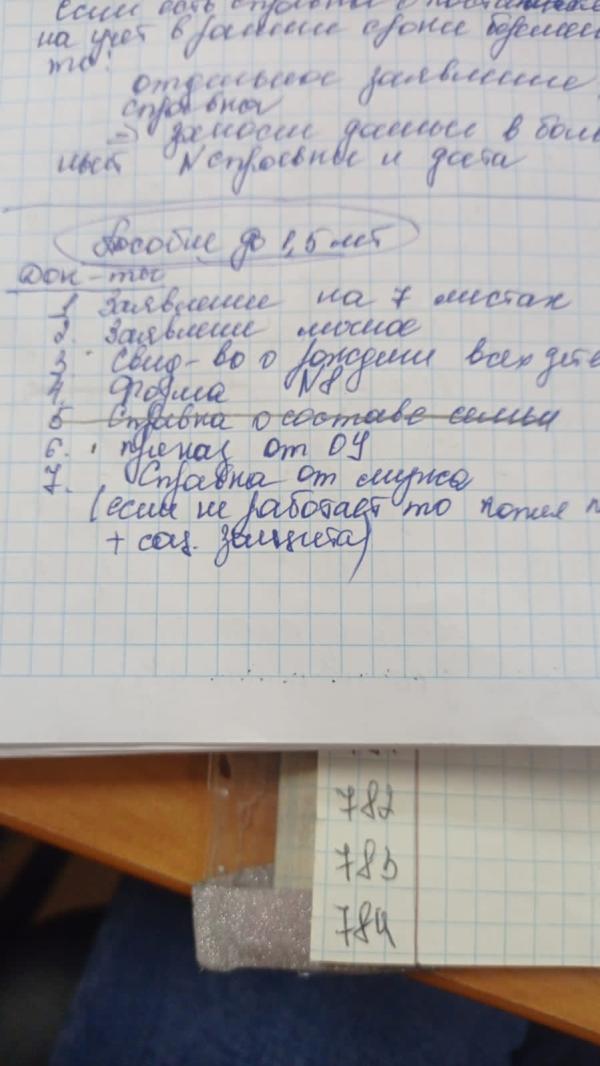 если есть справка о постановке
на учет в ранние сроки беремен
то:
отдельное заявление,
справка
=> заносим данные в боль
ныст N справки и дата
Пособие до 1,5 лет
Док-ты
1 Заявление на 7 листах
2. Заявление личное
3. Свид-во о рождении всех дете
4. Форма N8
5 Справка о составе семьи
6. приказ от ОУ
7. Справка от мужа
(если не работает то копия
+ соц. защита)
782
783
784